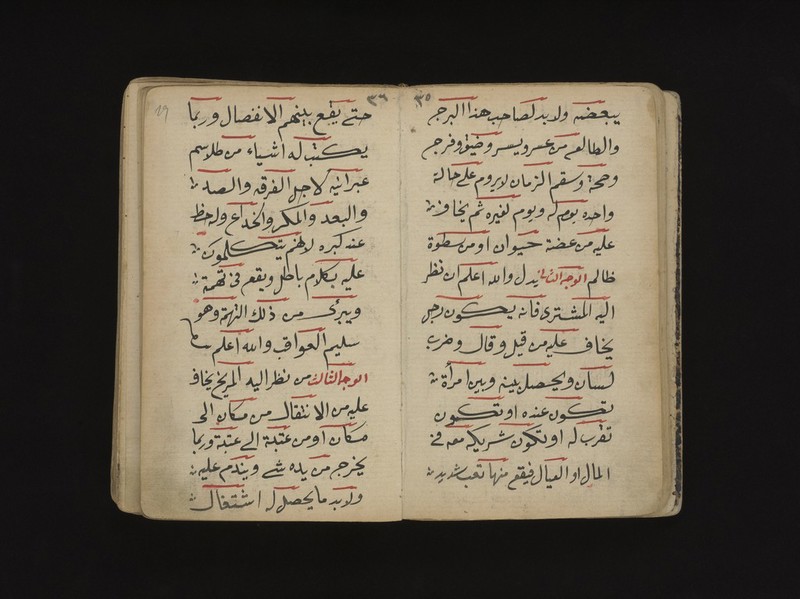 ٣٥
يبعضه ولابد لصاحب هذا البرج
والطالع من عسر ويسر وضيق وفرج
وصحة وسقم الزمان لا يدوم على حالة
واحده يوم له ويوم لغيره ثم يخاف
عليه من عضة حيوان او من سطوة
ظالم الوجه الثانى يدل والله اعلم ان نظر
اليه المشترى فانه يكون رجل
يخاف عليه من قيل وقال وضرب
لسان ويحصل بينه وبين امرأة
تكون عنده او تكون
تقرب له او تكون شريكه معه فى
المال او العيال فيقع منها تعب شديد
٣٦
19
حتى يقع بينهم الانفصال وربما
يكتب له اشياء من طلاسم
عبرانيه لاجل الفرقه والصد
والبعد والمكر والخداع وله حظ
عنه كبره لانهم يتكلمون
عليه بكلام باطل ويقع فى تهمة
ويبرئ من ذلك التهمة وهو
سليم العواقب والله اعلم
الوجه الثالث من نظر اليه المريخ يخاف
عليه من الانتقال من مكان الى
مكان او من عتبة الى عتبة وربما
يخرج من يده شئ ويندم عليه
ولابد ما يحصل له اشتغال